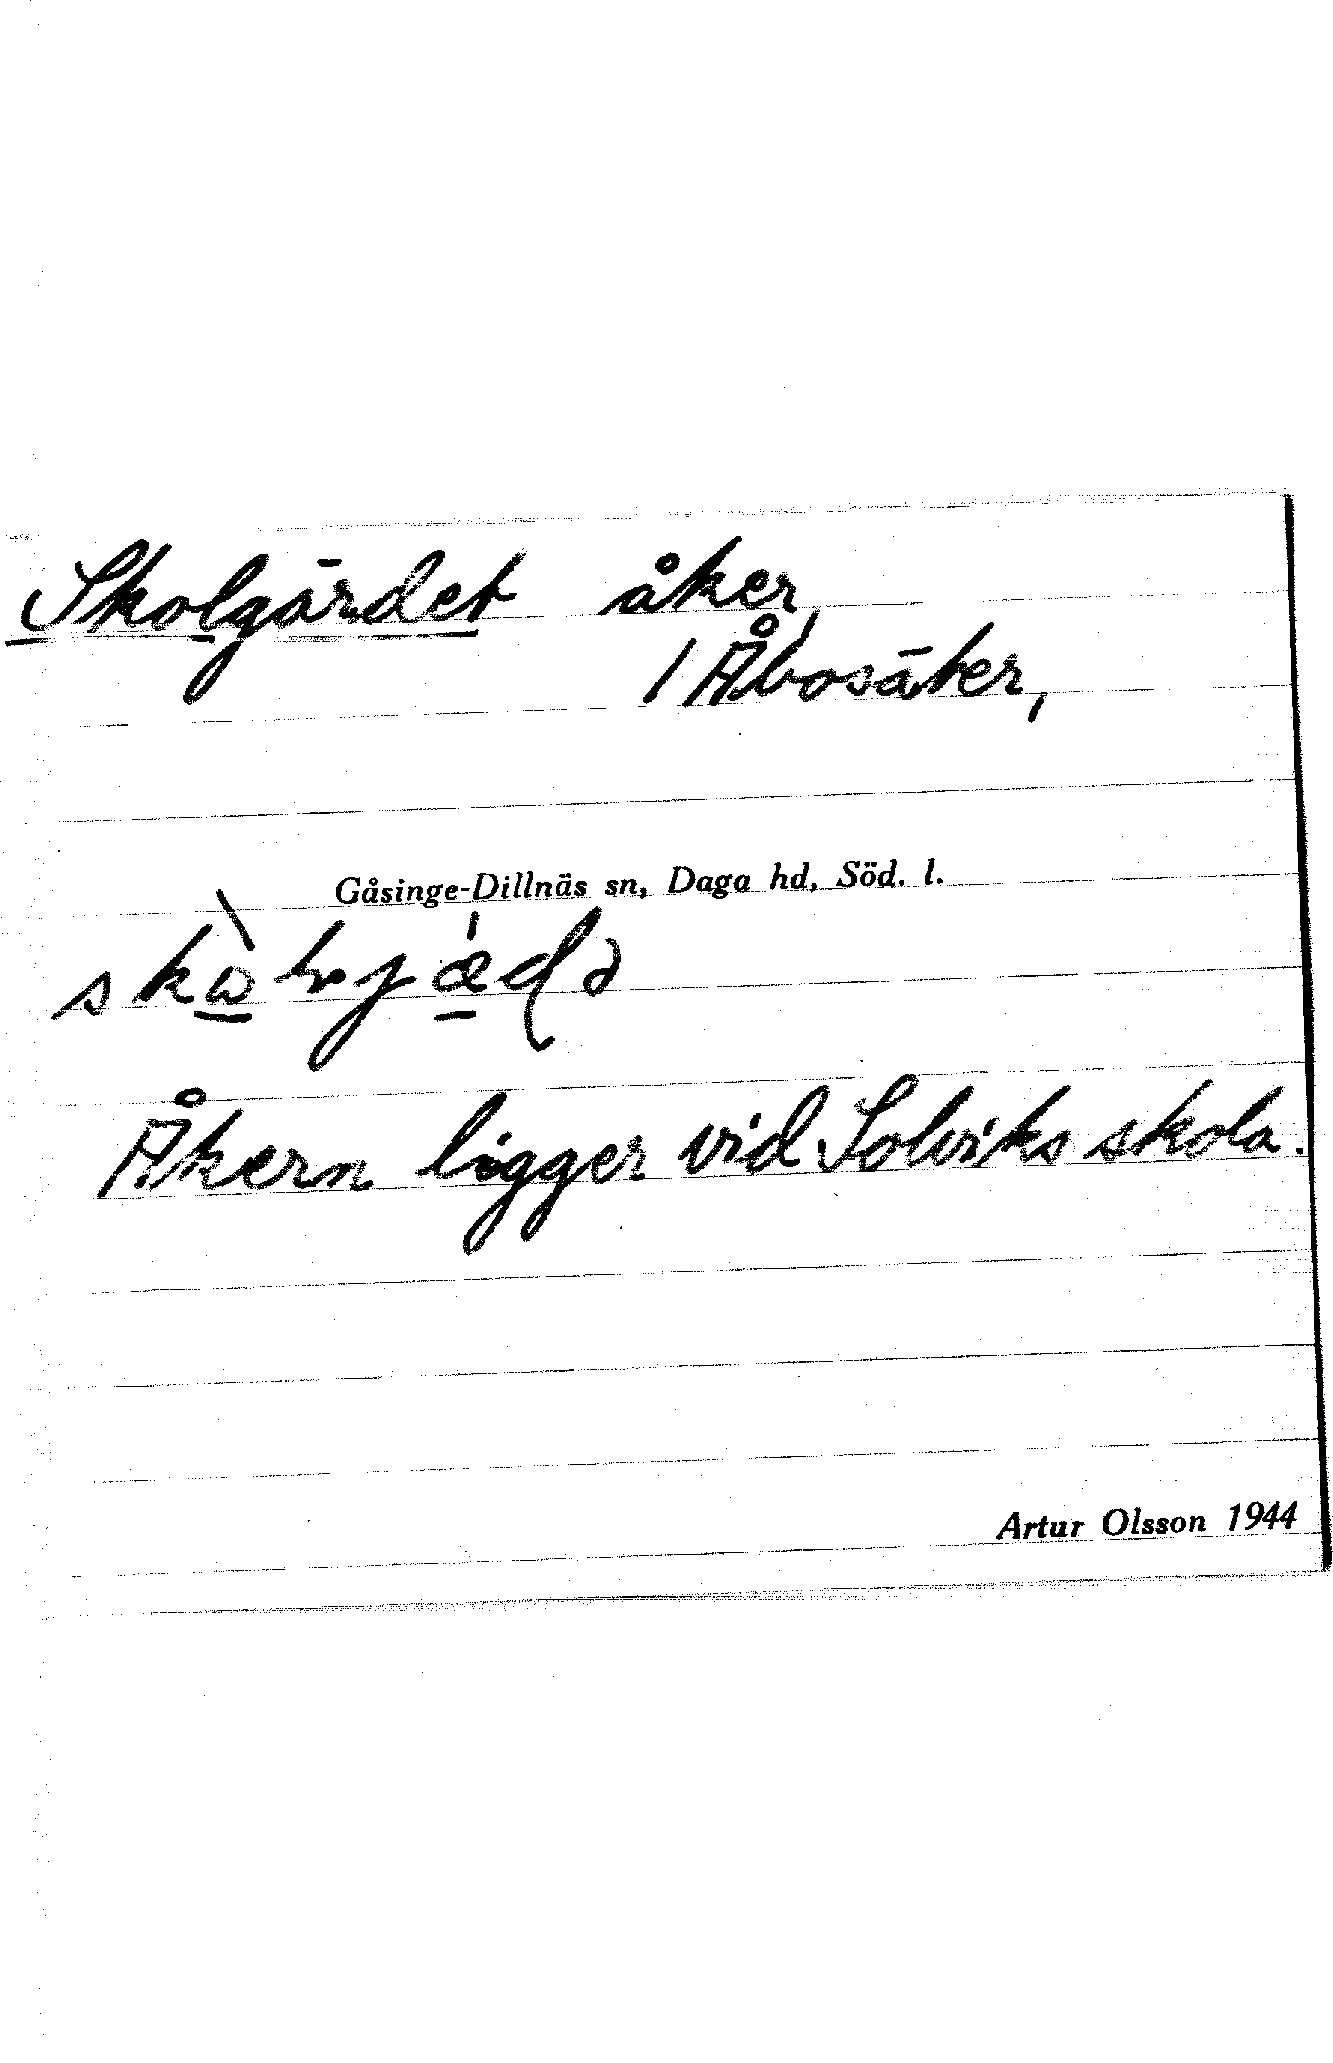 Skolgärdet åker,
/ Åbosäter,
Gåsinge-Dillnäs sn, Daga hd, Söd. l.
Åkern ligger vid Solviks skola.
Artur Olsson 1944